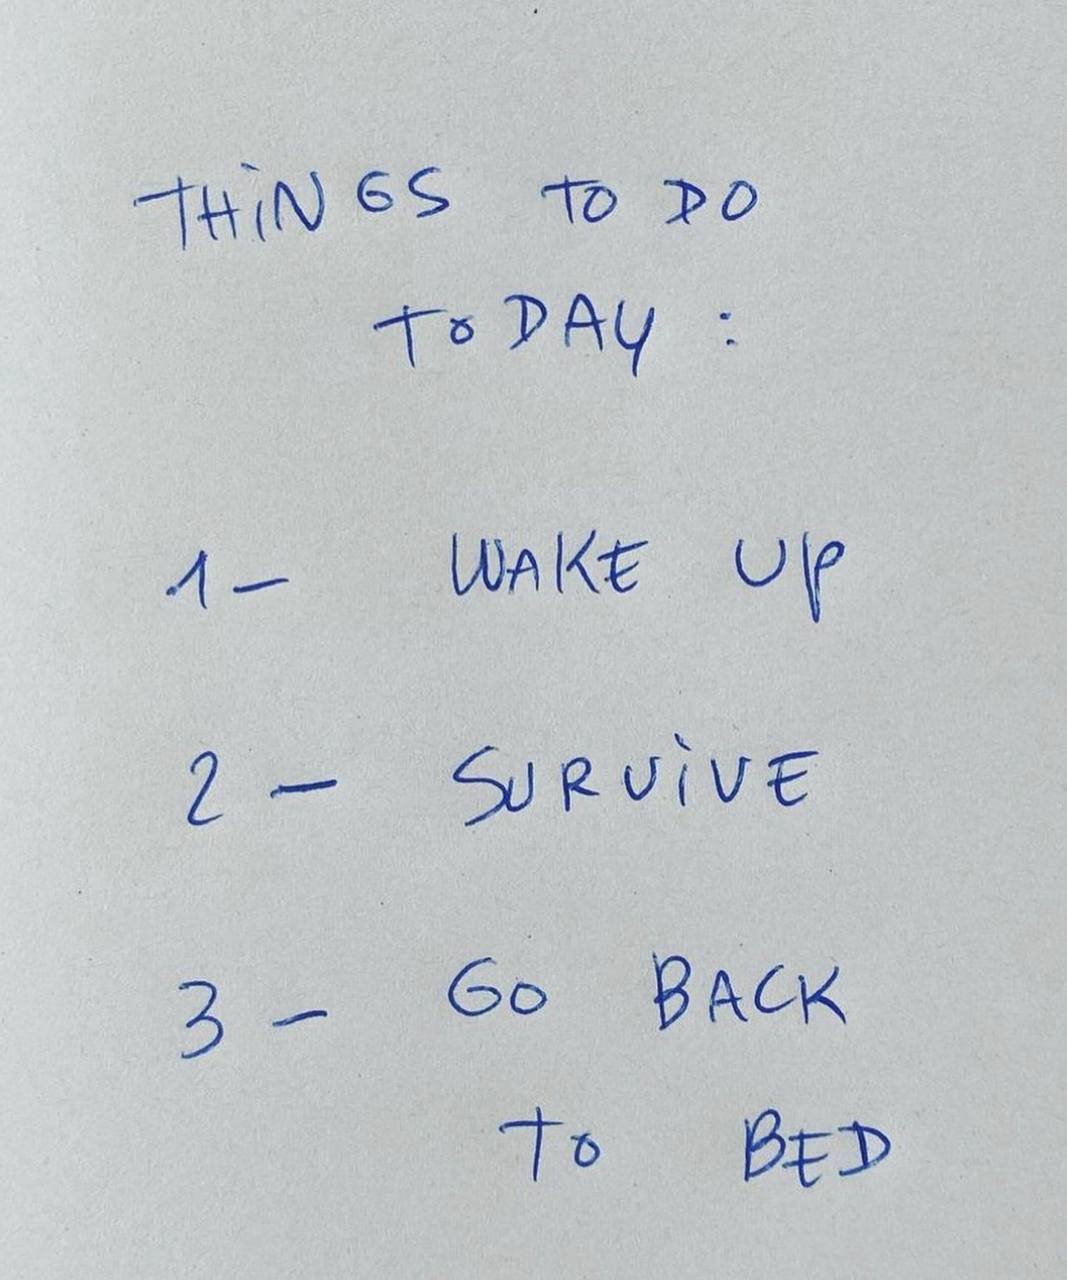 THiNGS TO DO
ToDAY :
1- WAKE UP
2 - SURViVE
3 - GO BACK
To BED